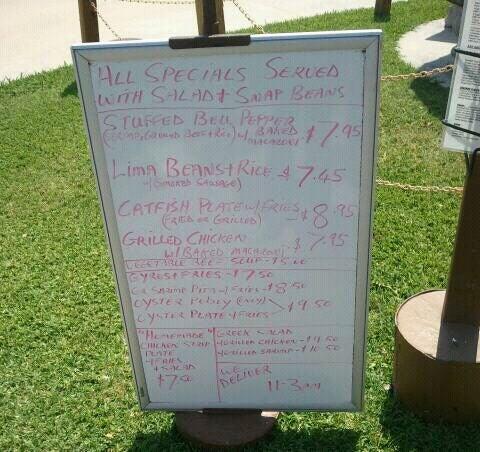 ALL SPECIALS SERVED
WITH SALAD + SNAP BEANS
STUFFED BELL PEPPER
(SHRIMP, GROUND BEEF + RICE) W/ BAKED MACARONI $7.95
LIMA BEANS + RICE $7.45
W/ (SMOKED SAUSAGE)
CATFISH PLATE W/ FRIES $8.95
(FRIED OR GRILLED)
GRILLED CHICKEN $7.95
W/ BAKED MACARONI
VEGETABLE BEEF SOUP - $5.00
GYROS + FRIES - $7.50
SHRIMP PITA + FRIES - $8.50
OYSTER POBOY (ONLY)
OYSTER PLATE + FRIES $9.50
"HOMEMADE"
CHICKEN STRIP
PLATE
+ FRIES
+ SALAD
$7.50
GREEK SALAD
+ GRILLED CHICKEN - $9.50
+ GRILLED SHRIMP - $10.50
WE
DELIVER
11-3